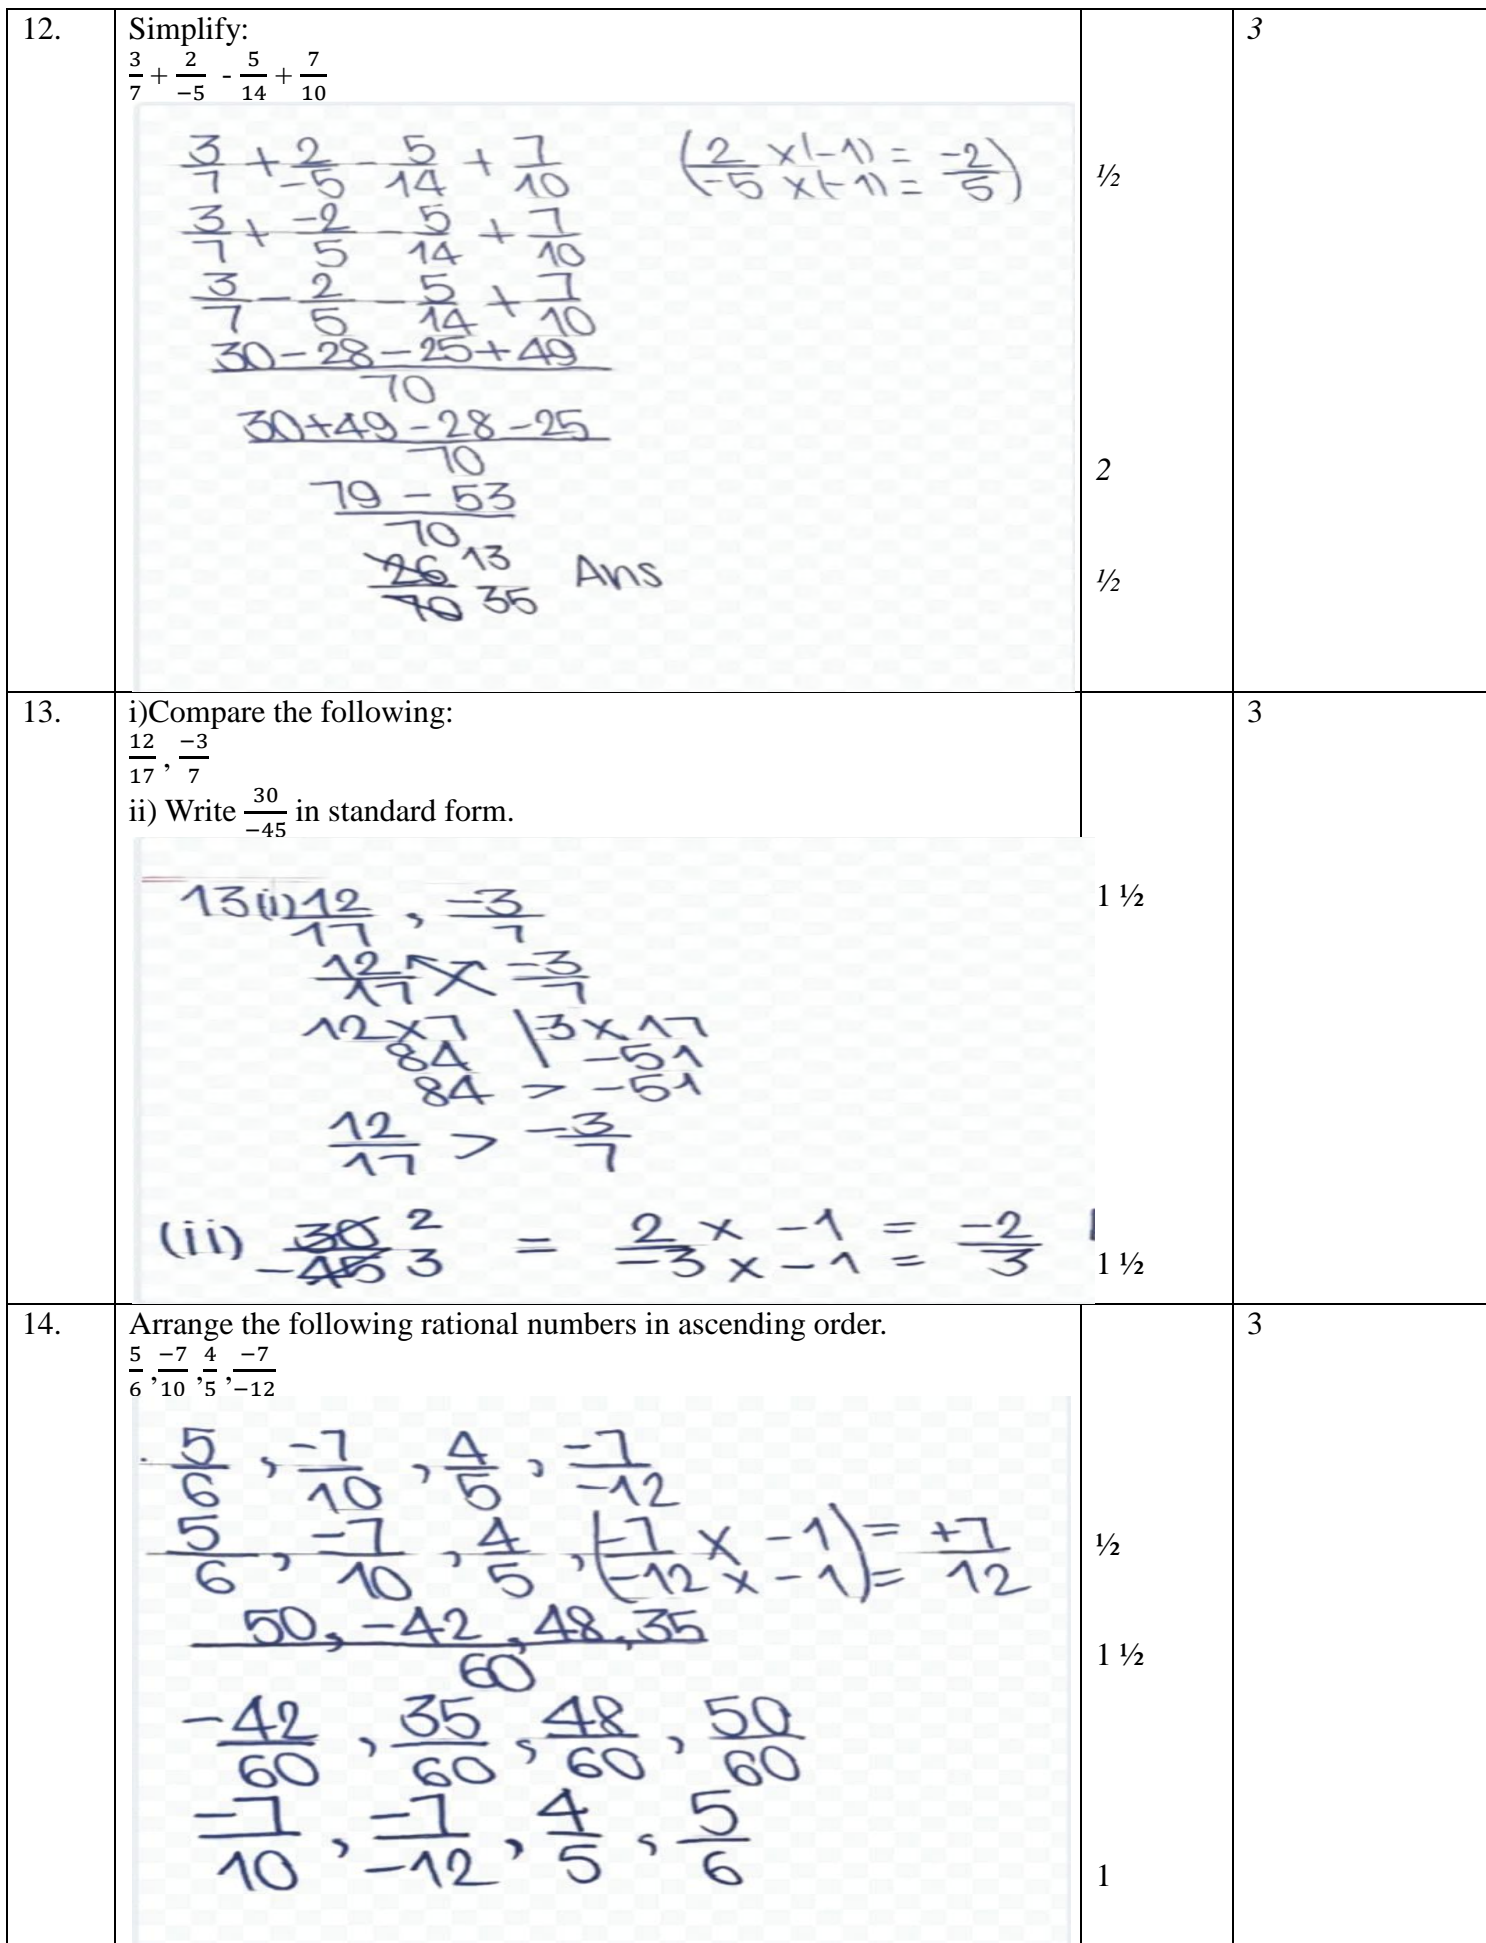 12. Simplify: 3
3/7 + 2/−5 - 5/14 + 7/10
3/7 + 2/-5 - 5/14 + 7/10 (2/-5 ×(-1)/×(-1) = = -2/5) ½
3/7 + -2/5 - 5/14 + 7/10
3/7 - 2/5 - 5/14 + 7/10
30-28-25+49/70
30+49-28-25/70
79 - 53/70 2
26/70 13/35 Ans ½
13. i)Compare the following: 3
12/17 , −3/7
ii) Write 30/−45 in standard form.
13(i) 12/17 , -3/7 1 ½
12/17 -3/7
12×7 | -3×17
84 | -51
84 > -51
12/17 > -3/7
(ii) 30/-45 2/3 = 2/-3 × -1/× -1 = = -2/3 1 ½
14. Arrange the following rational numbers in ascending order. 3
5/6 , −7/10 , 4/5 , −7/−12
5/6 , -7/10 , 4/5 , -7/-12
5/6 , -7/10 , 4/5 , (-7/-12 × -1/× -1) = = +7/12 ½
50, -42, 48, 35/60 1 ½
-42/60 , 35/60 , 48/60 , 50/60
-7/10 , -7/-12 , 4/5 , 5/6 1